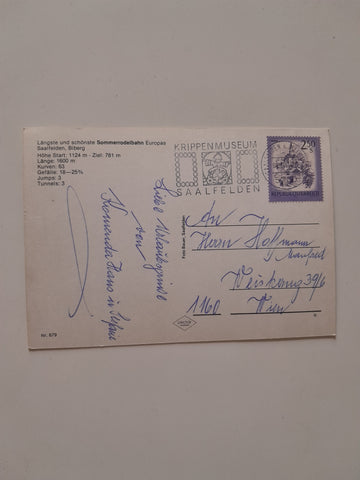 Längste und schönste Sommerrodelbahn Europas
Saalfelden, Biberg
Höhe Start: 1124 m - Ziel: 781 m
Länge: 1600 m
Kurven: 63
Gefälle: 18—25%
Jumps: 3
Tunnels: 3
KRIPPENMUSEUM
SAALFELDEN
2.50
REPUBLIK ÖSTERREICH
Liebe Urlaubsgrüße
von
Hans u.
An
Herrn
Manfred
39/6
1160 Wien
Nr. 679